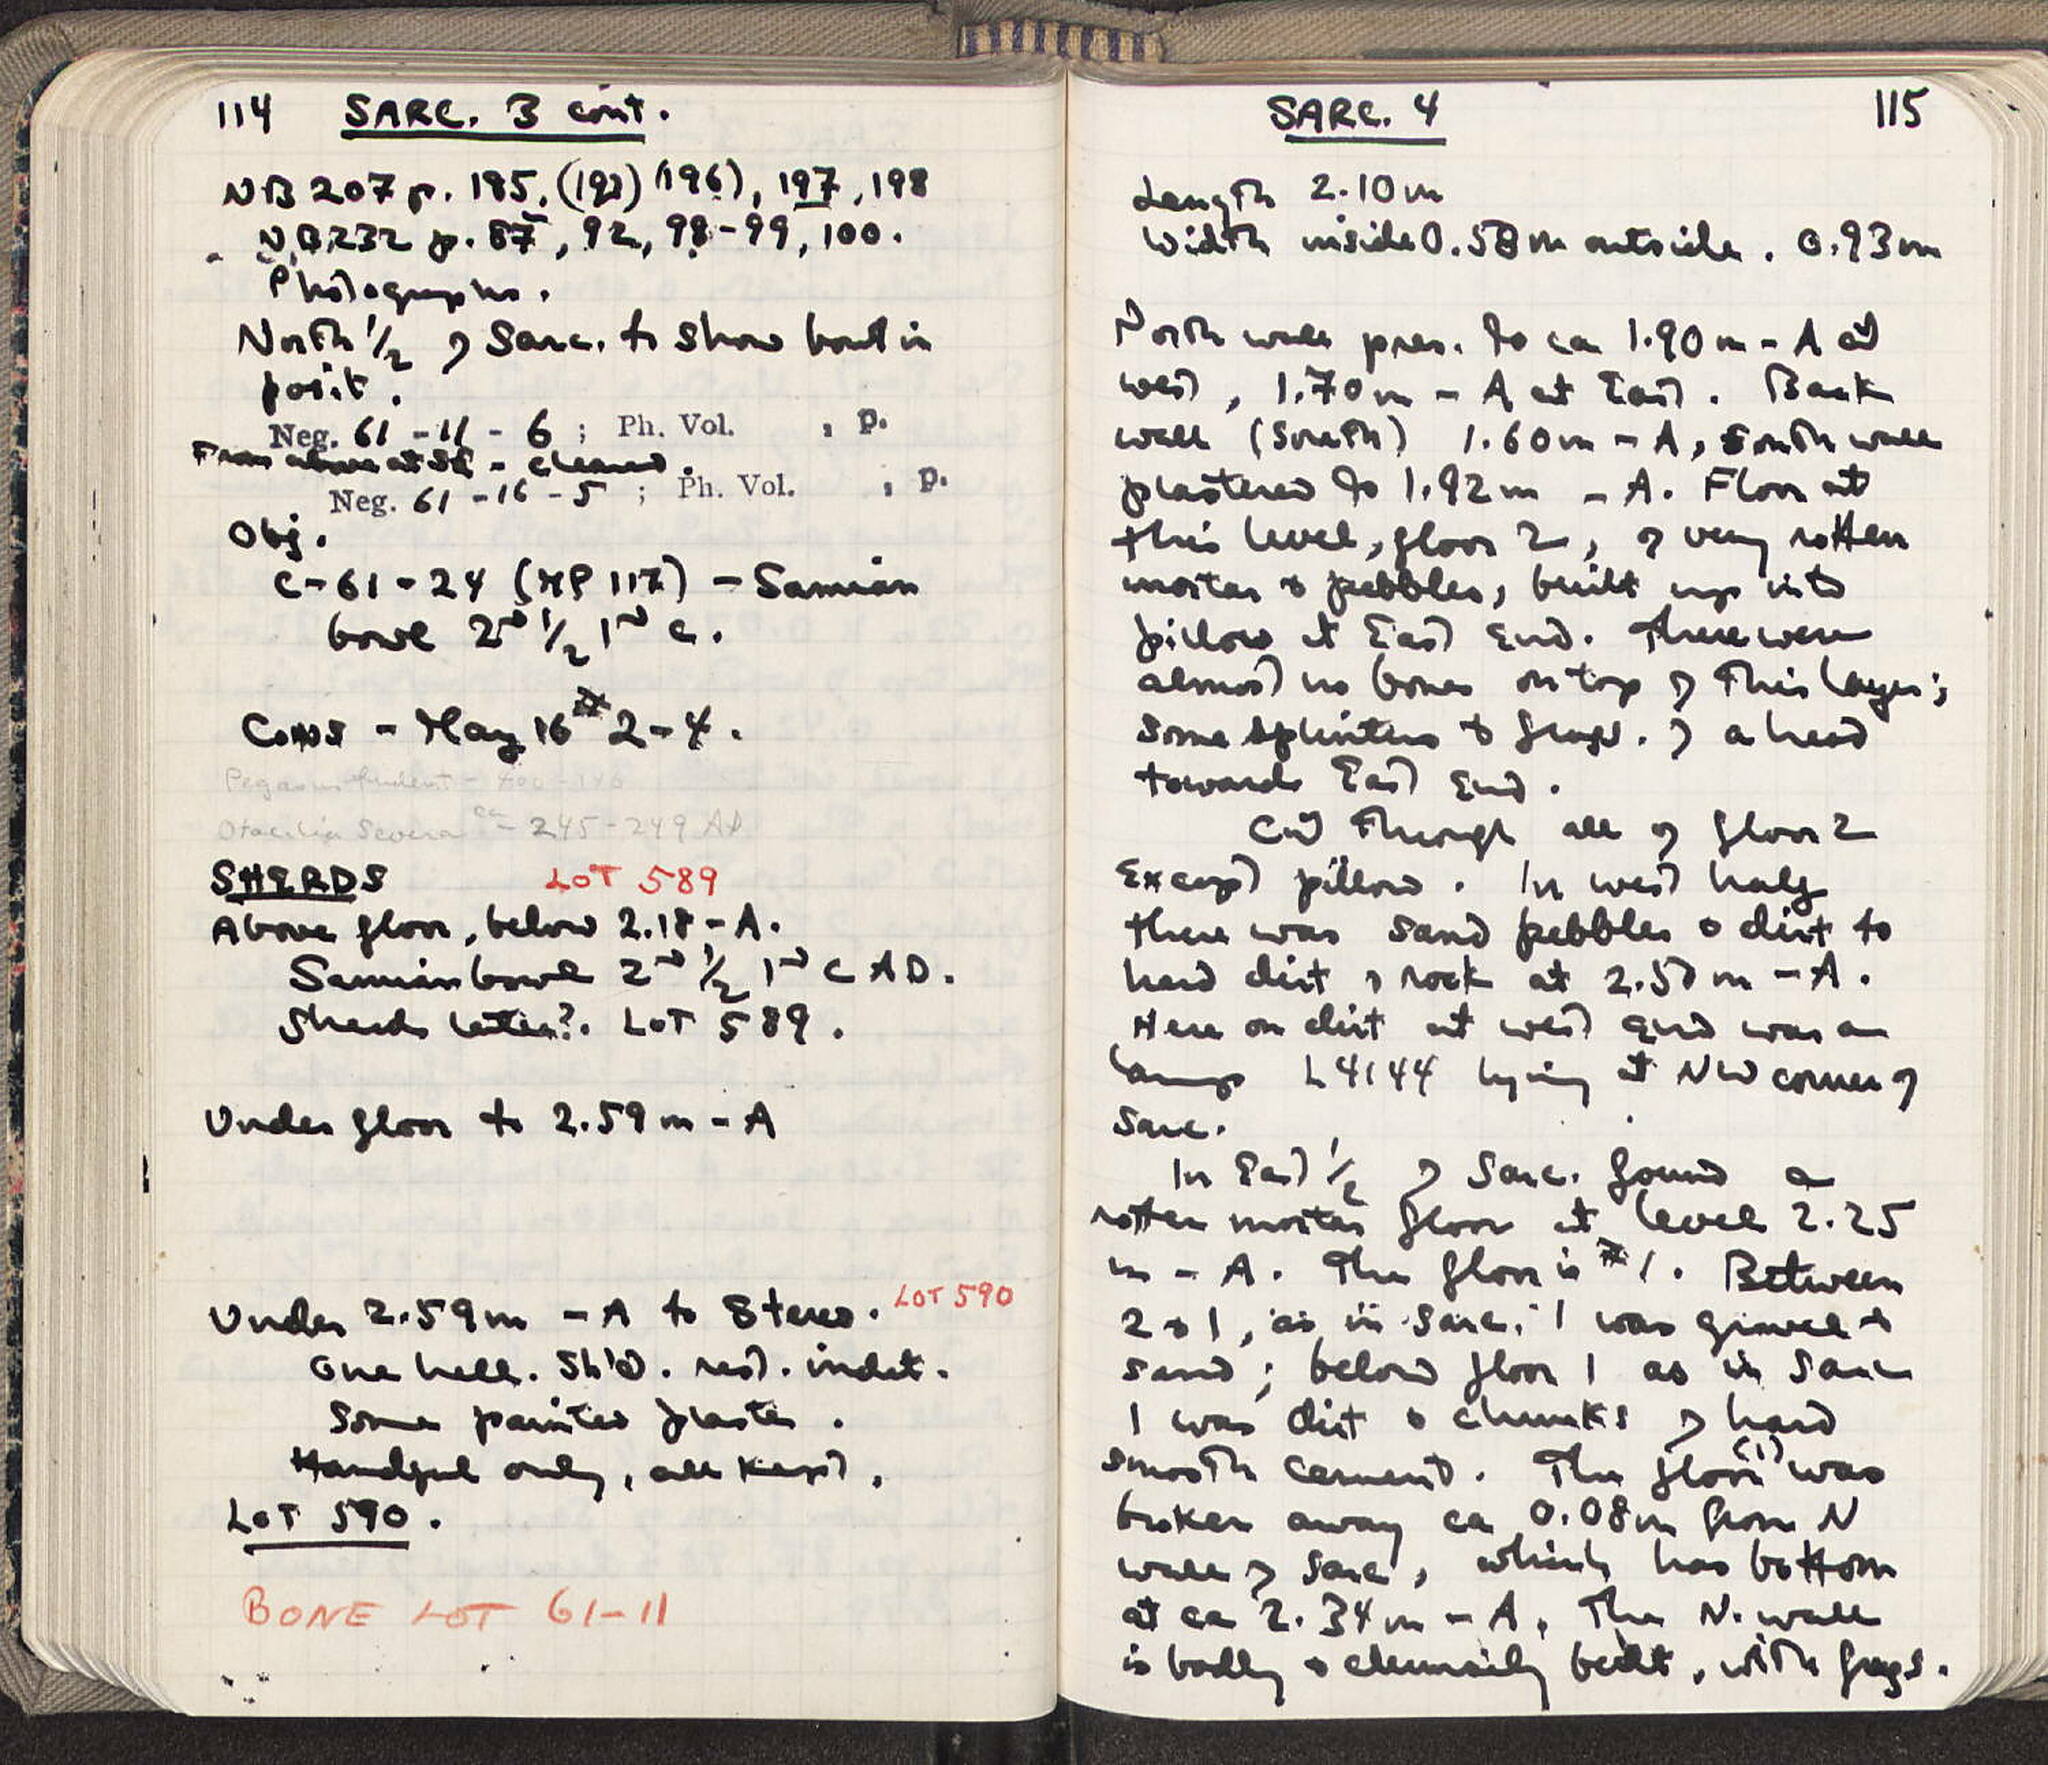 114 SARC. 3 cont.
NB 207 p. 195, (192) (196), 197, 198
NB 232 p. 87, 92, 98-99, 100.
Photographs.
North 1/2 of Sarc. to show bowl in
posit.
Neg. 61 - 11 - 6 ; Ph. Vol. , p.
From above at SE - cleaned.
Neg. 61 - 16 - 5 ; Ph. Vol. , p.
Obj.
C-61-24 (MP 117) - Samian
bowl 2nd 1/2 1st c.
Coins - May 16 # 2-4.
Pegasus trident - 400-146
Otacilia Severa ca - 245-249 AD
SHERDS LOT 589
Above floor, below 2.18 - A.
Samian bowl 2nd 1/2 1st C AD.
Sherds later?. LOT 589.
Under floor to 2.59 m - A
Under 2.59 m - A to Stereo. LOT 590
One hell. sh'd. rest. indet.
Some painted plaster.
Handful only, all kept.
LOT 590.
BONE LOT 61-11
SARC. 4 115
Length 2.10 m
Width inside 0.58 m outside. 0.93 m
North wall pres. to ca 1.90 m - A at
west, 1.70 m - A at East. Back
wall (South) 1.60 m - A, South wall
plastered to 1.92 m - A. Floor at
this level, floor 2, of very rotten
mortar & pebbles, built up into
pillow at East End. There were
almost no bones on top of this layer;
some splinters & frags. of a head
towards East End.
Cut through all of floor 2
Except pillow. In west half
there was sand pebbles & dirt to
hard dirt & rock at 2.50 m - A.
Here on dirt at west end was a
lamp L4144 lying at NW corner of
Sarc.
In East 1/2 of Sarc. found a
rotten mortar floor at level 2.25
m - A. This floor is # 1. Between
2 & 1, as in Sarc. 1 was gravel &
sand; below floor 1 as in Sarc
1 was dirt & chunks of hard
smooth cement. The floor (1) was
broken away ca 0.08 m from N
wall of Sarc, which has bottom
at ca 2.34 m - A. The N. wall
is badly & clumsily built, with frags.